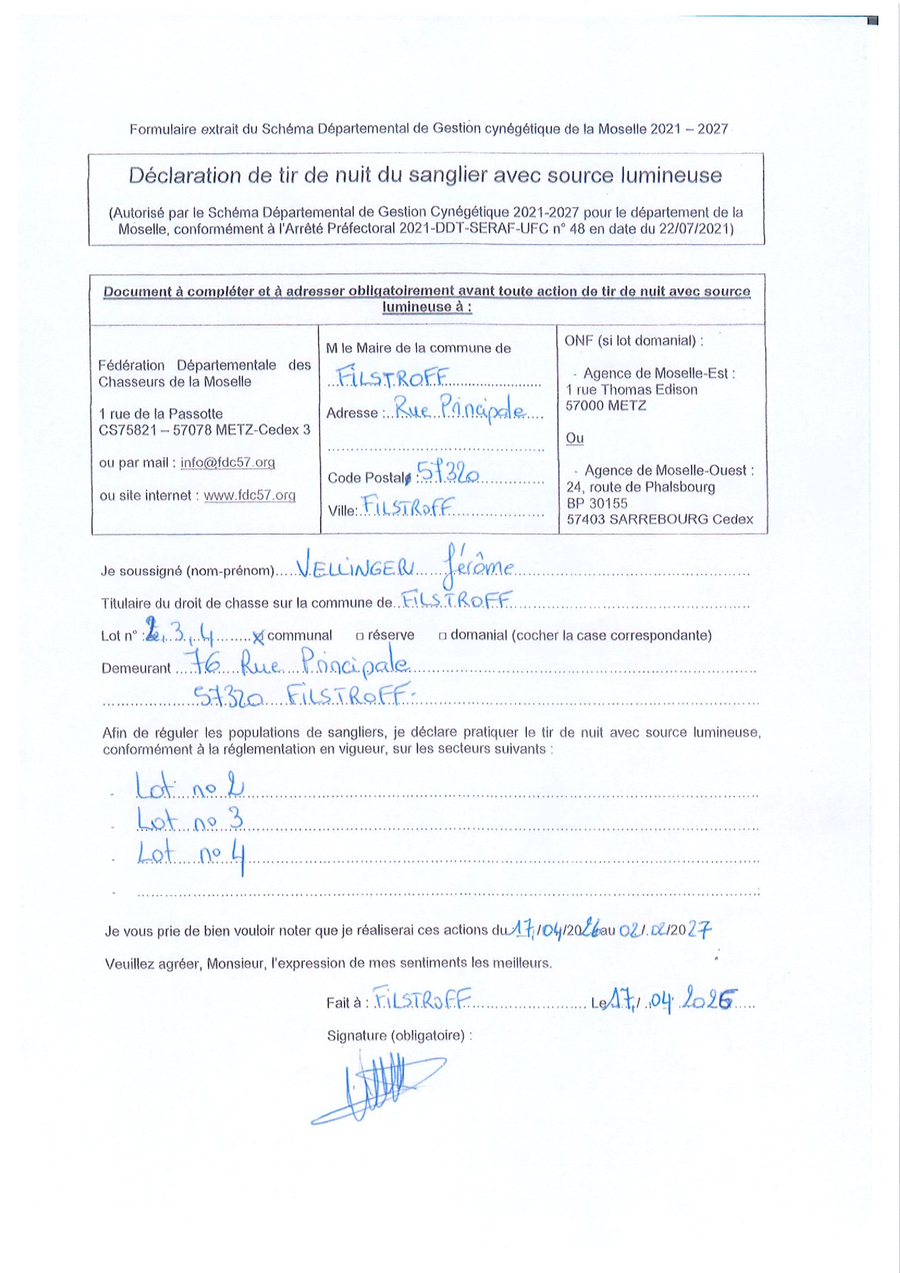 Formulaire extrait du Schéma Départemental de Gestion cynégétique de la Moselle 2021 – 2027
Déclaration de tir de nuit du sanglier avec source lumineuse
(Autorisé par le Schéma Départemental de Gestion Cynégétique 2021-2027 pour le département de la
Moselle, conformément à l'Arrêté Préfectoral 2021-DDT-SERAF-UFC n° 48 en date du 22/07/2021)
Document à compléter et à adresser obligatoirement avant toute action de tir de nuit avec source
lumineuse à :
Fédération Départementale des
Chasseurs de la Moselle
1 rue de la Passotte
CS75821 – 57078 METZ-Cedex 3
ou par mail : info@fdc57.org
ou site internet : www.fdc57.org
M le Maire de la commune de
FILSTROFF
Adresse : Rue Principale
Code Postal : 57320
Ville: FILSTROFF
ONF (si lot domanial) :
- Agence de Moselle-Est :
1 rue Thomas Edison
57000 METZ
Ou
- Agence de Moselle-Ouest :
24, route de Phalsbourg
BP 30155
57403 SARREBOURG Cedex
Je soussigné (nom-prénom) VELLINGER Jérôme
Titulaire du droit de chasse sur la commune de FILSTROFF
Lot n° : 2, 3, 4 ☒ communal □ réserve □ domanial (cocher la case correspondante)
Demeurant 76 Rue Principale
57320 FILSTROFF.
Afin de réguler les populations de sangliers, je déclare pratiquer le tir de nuit avec source lumineuse,
conformément à la réglementation en vigueur, sur les secteurs suivants :
- Lot no 2
- Lot no 3
- Lot no 4
-
Je vous prie de bien vouloir noter que je réaliserai ces actions du 17/04/2026 au 02/02/2027
Veuillez agréer, Monsieur, l'expression de mes sentiments les meilleurs.
Fait à : FILSTROFF Le 17/04 2026
Signature (obligatoire) :